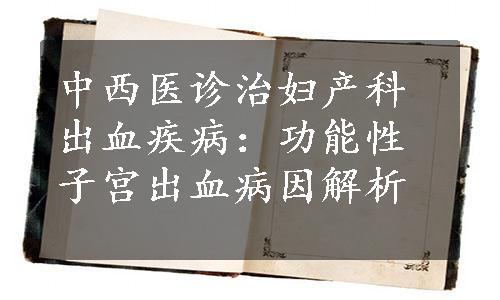 中西医诊治妇产科
出血疾病：功能性
子宫出血病因解析